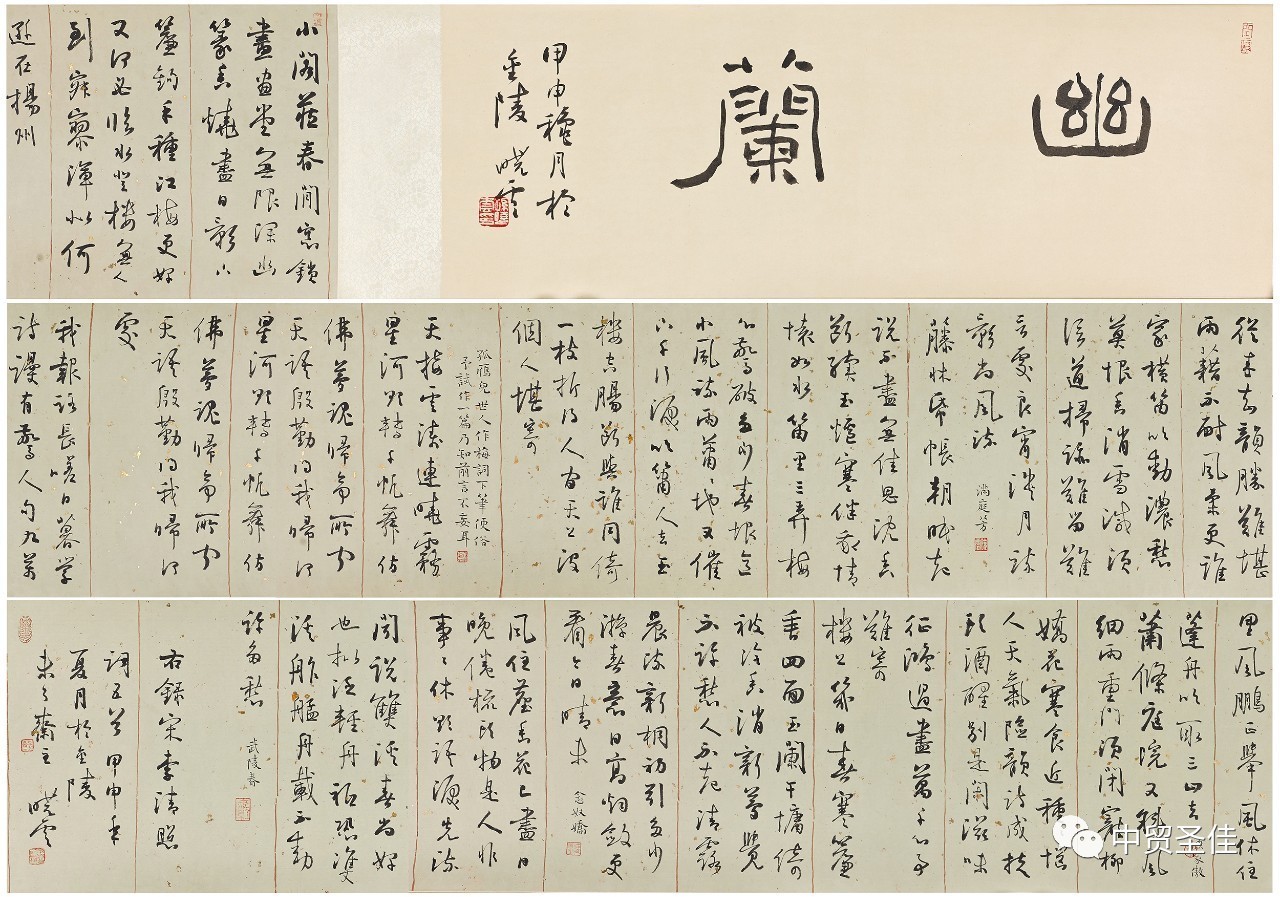 幽蘭
甲申穐月於
金陵 曉雲
小閣藏春閒窗鎖
晝畫堂無限深幽
篆香燒盡日影下
簾鉤手種江梅更好
又何必臨水登樓無人
到寂寥渾似何
遜在揚州
從來知韻勝難堪
雨藉不耐風柔更誰
家橫笛吹動濃愁
莫恨香消雪減須
信道掃跡難留難
言處良宵淡月疏
影尚風流 滿庭芳
藤床紙帳朝眠起
說不盡無佳思沈香
斷續玉爐寒伴我情
懷如水笛里三弄梅
心驚破多少春意
小風疏雨蕭蕭地又催
下千行淚吹簫人去玉
樓空腸斷與誰同倚
一枝折得人間天上沒
個人堪寄
孤雁兒世人作梅詞下筆便俗
予試作一篇乃知前言不妄耳
天接雲濤連曉霧
星河欲轉千帆舞彷
佛夢魂歸帝所聞
天語殷勤問我歸何
星河欲轉千帆舞彷
佛夢魂歸帝所聞
天語殷勤問我歸何
處
我報路長嗟日暮學
詩謾有驚人句九萬
里風鵬正舉風休住
蓬舟吹取三山去 漁家傲
蕭條庭院又斜風
細雨重門須閉寵柳
嬌花寒食近種種惱
人天氣險韻詩成扶
頭酒醒別是閒滋味
征鴻過盡萬千心事
難寄
樓上幾日春寒簾
垂四面玉闌干慵倚
被冷香消新夢覺
不許愁人不起清露
晨流新桐初引多少
游春意日高煙斂更
看今日晴未 念奴嬌
風住塵香花已盡日
晚倦梳頭物是人非
事事休欲語淚先流
聞說雙溪春尚好
也擬泛輕舟只恐雙
溪舴艋舟載不動
許多愁 武陵春
右錄宋李清照
詞五首甲申年
夏月於金陵
未之齋主 曉雲
中贸圣佳